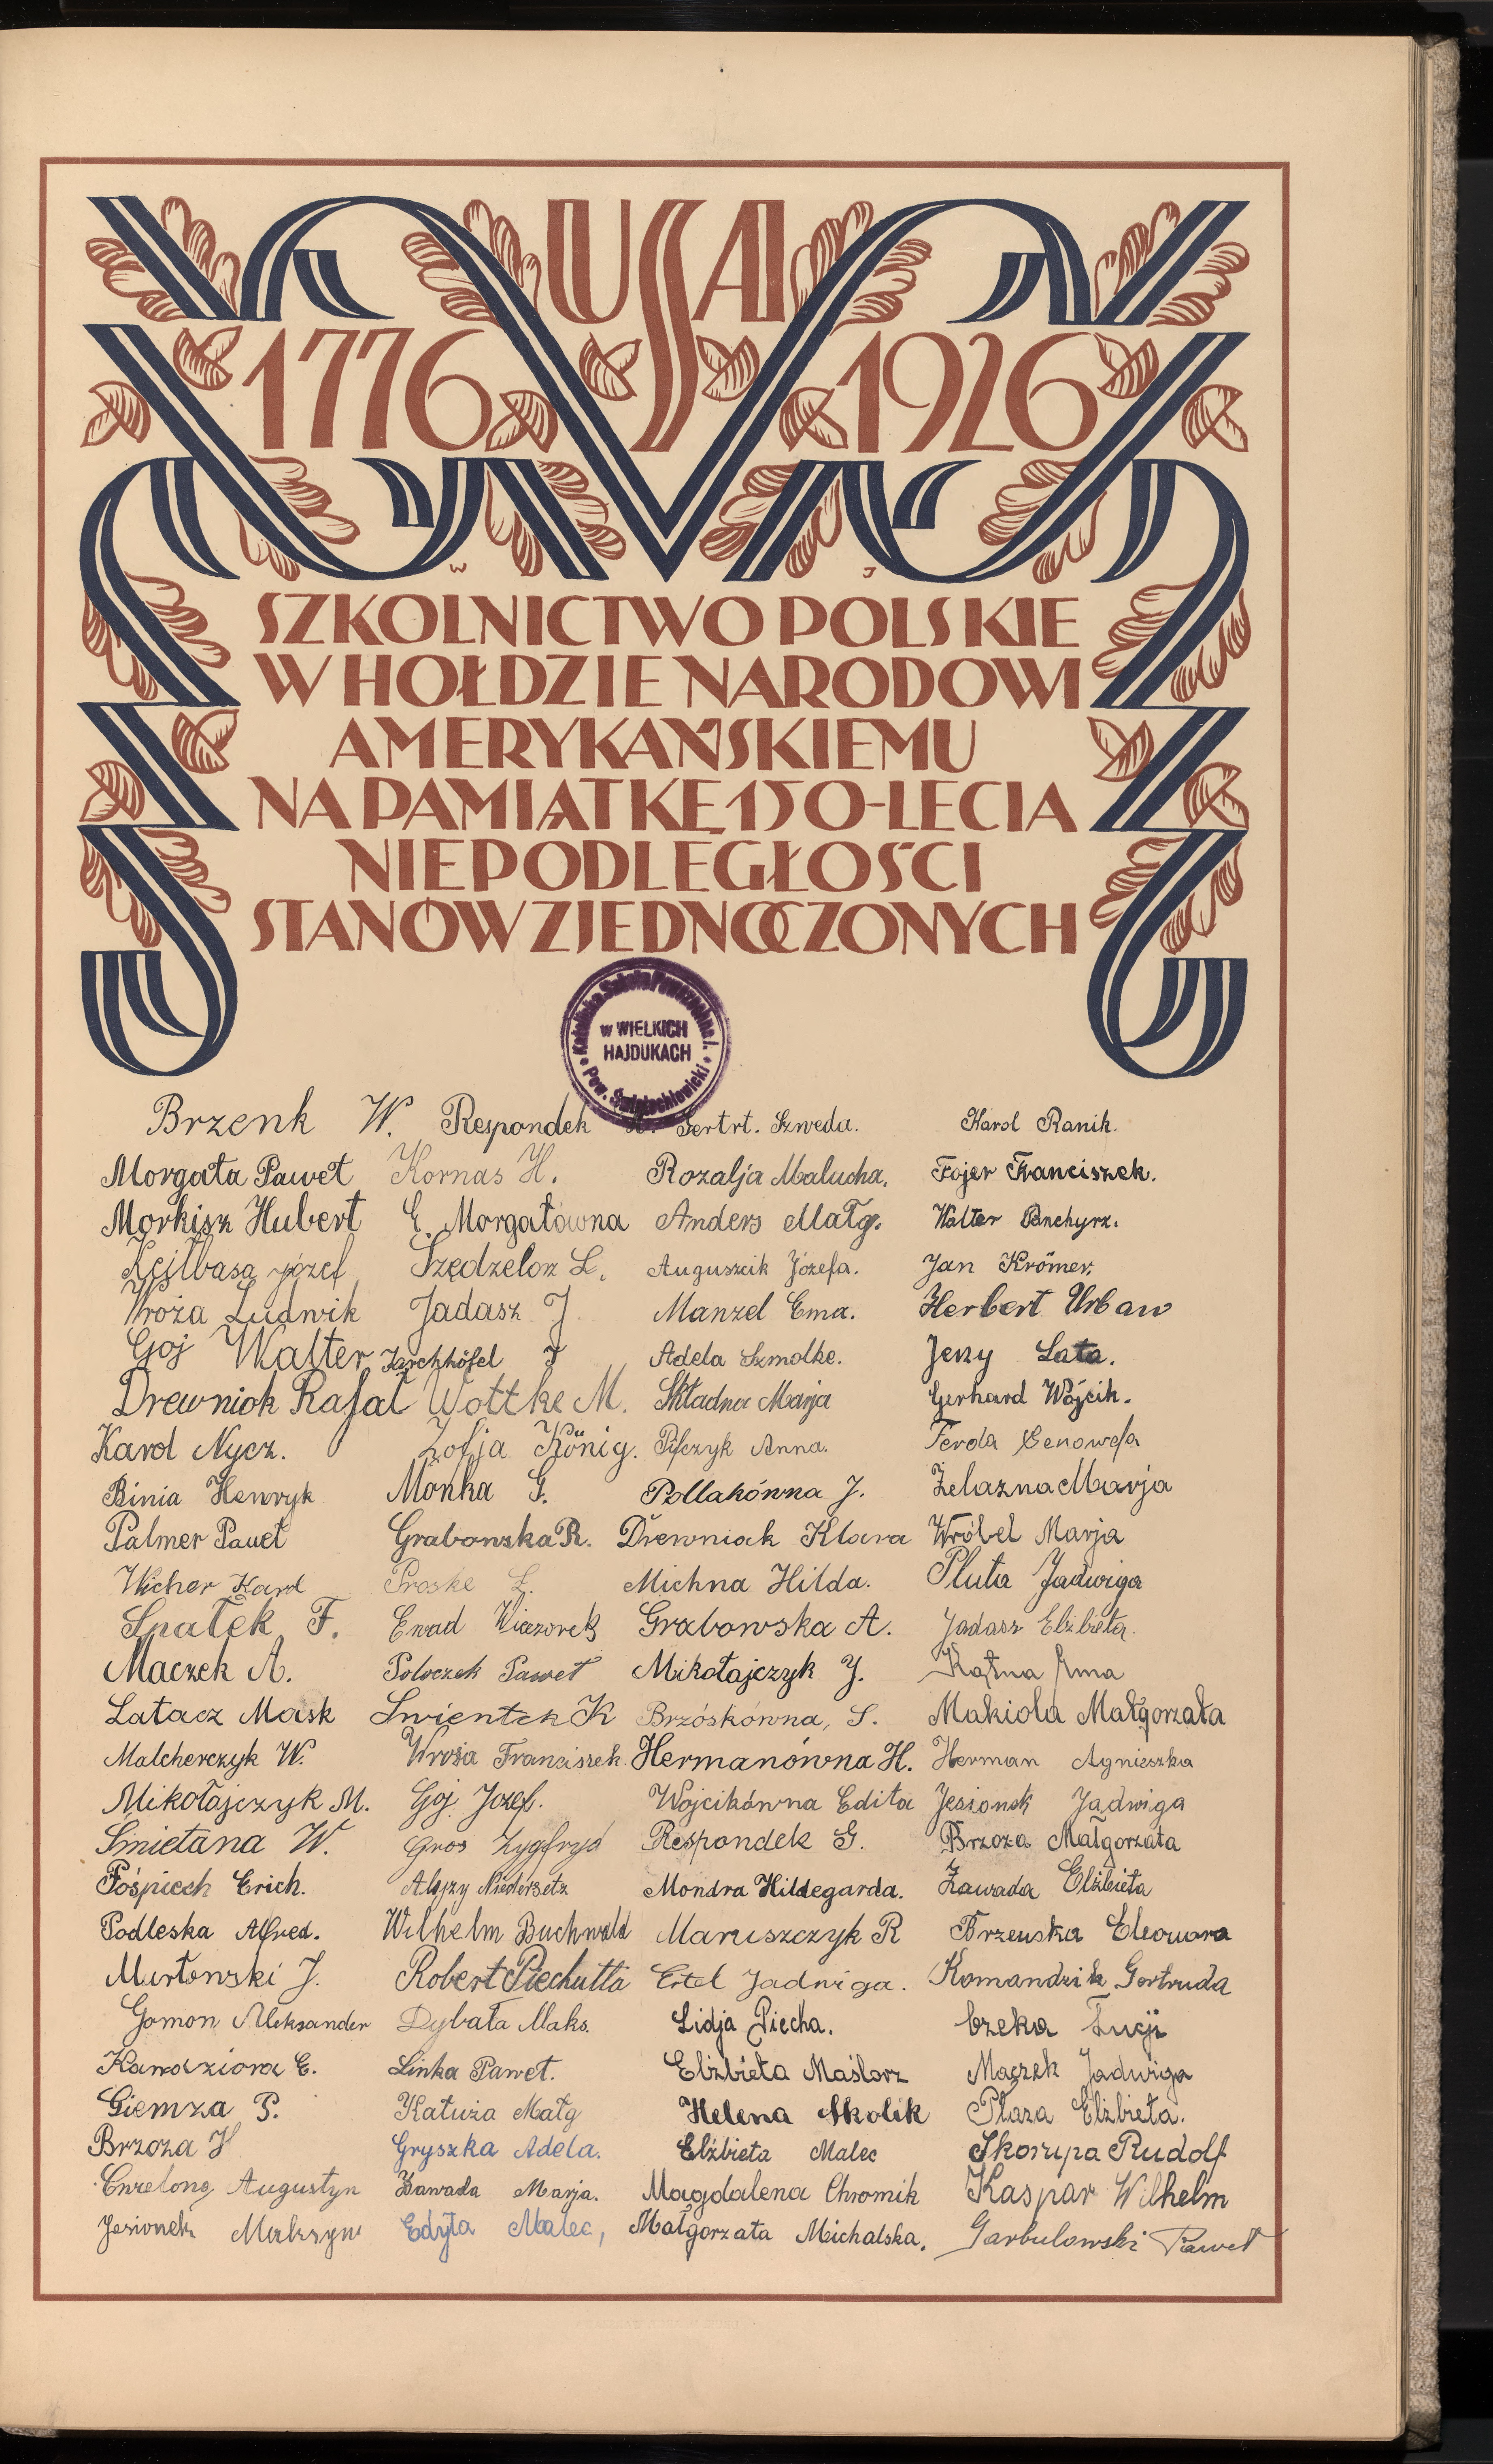 USA
1776 1926
W J
SZKOLNICTWO POLSKIE
W HOŁDZIE NARODOWI
AMERYKAŃSKIEMU
NA PAMIĄTKĘ 150-LECIA
NIEPODLEGŁOŚCI
STANÓW ZJEDNOCZONYCH
Katolicka Szkoła Powszechna I.
w WIELKICH
HAJDUKACH
Pow. Świętochłowicki
Brzenk W. Respondek Gertrt. Szweda. Karol Ranik.
Morgała Paweł Kornas H. Rozalja Malucha. Fojer Franciszek.
Morkisz Hubert E. Morgałówna Anders Małg. Walter Panchyrz.
Józef Szędzielorz L. Auguszcik Józefa. Jan Krömer.
Wroża Ludwik Jadasz J. Manzel Ema. Herbert Urban
Goj Walter Jarchhöfel J Adela Szmolke. Jerzy Lata.
Drewniok Rafał Wottke M. Składna Marja Gerhard Wójcik.
Karol Nycz. Zofja König. Pifczyk Anna. Ferda Genowefa
Binia Henryk Mońka G. Pollakówna J. Żelazna Marja
Palmer Paweł Grabowska R. Drewniak Klara Wróbel Marja
Wicher Karol Proske L. Michna Hilda. Pluta Jadwiga
Spałek F. Ewad Wieczorek Grabowska A. Jadasz Elżbieta.
Maczek A. Poloczek Paweł Mikołajczyk J. Kątna Ama
Latacz Mask Swientek K Brzóskówna, S. Makiola Małgorzata
Malcherczyk W. Wroża Franciszek. Hermanówna H. Herman Agnieszka
Mikołajczyk M. Goj Józef. Wojcikówna Edita Jesionek Jadwiga
Smietana W. Gros Zygfryd Respondek G. Brzoza Małgorzata
Pośpiech Erich. Alojzy Niedersetz Mondra Hildegarda. Zawada Elżbieta
Podleska Alfred. Wilhelm Buchwald Maruszczyk R Brzenska Eleonora
J. Robert Piechutta Ertel Jadwiga. Komandzik Gertruda
Gomon Aleksander Dybała Maks. Lidja Piecha. Czeka Łucji
Kawaziora E. Linka Paweł. Elżbieta Maślorz Maczek Jadwiga
Giemza P. Katuża Małg Helena Skolik Płaza Elżbieta.
Brzoza H Gryszka Adela. Elżbieta Malec Skorupa Rudolf
Augustyn Zawada Marja. Magdalena Chromik Kaspar Wilhelm
Jesionek Maksym Edyta Malec, Małgorzata Michalska. Garbulowski Paweł